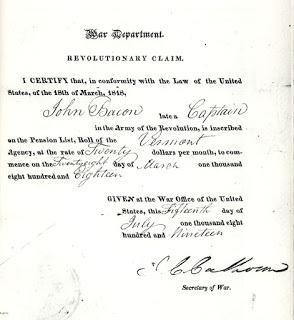 War Department.
REVOLUTIONARY CLAIM.
I CERTIFY that, in conformity with the Law of the United
States, of the 18th of March, 1818,
John Bacon late a Captain
in the Army of the Revolution, is inscribed
on the Pension List, Roll of the Vermont
Agency, at the rate of Twenty dollars per month, to com-
mence on the Twenty eight day of March one thousand
eight hundred and Eighteen
GIVEN at the War Office of the United
States, this Fifteenth day of
July one thousand eight
hundred and Nineteen
J C Calhoun
Secretary of War.